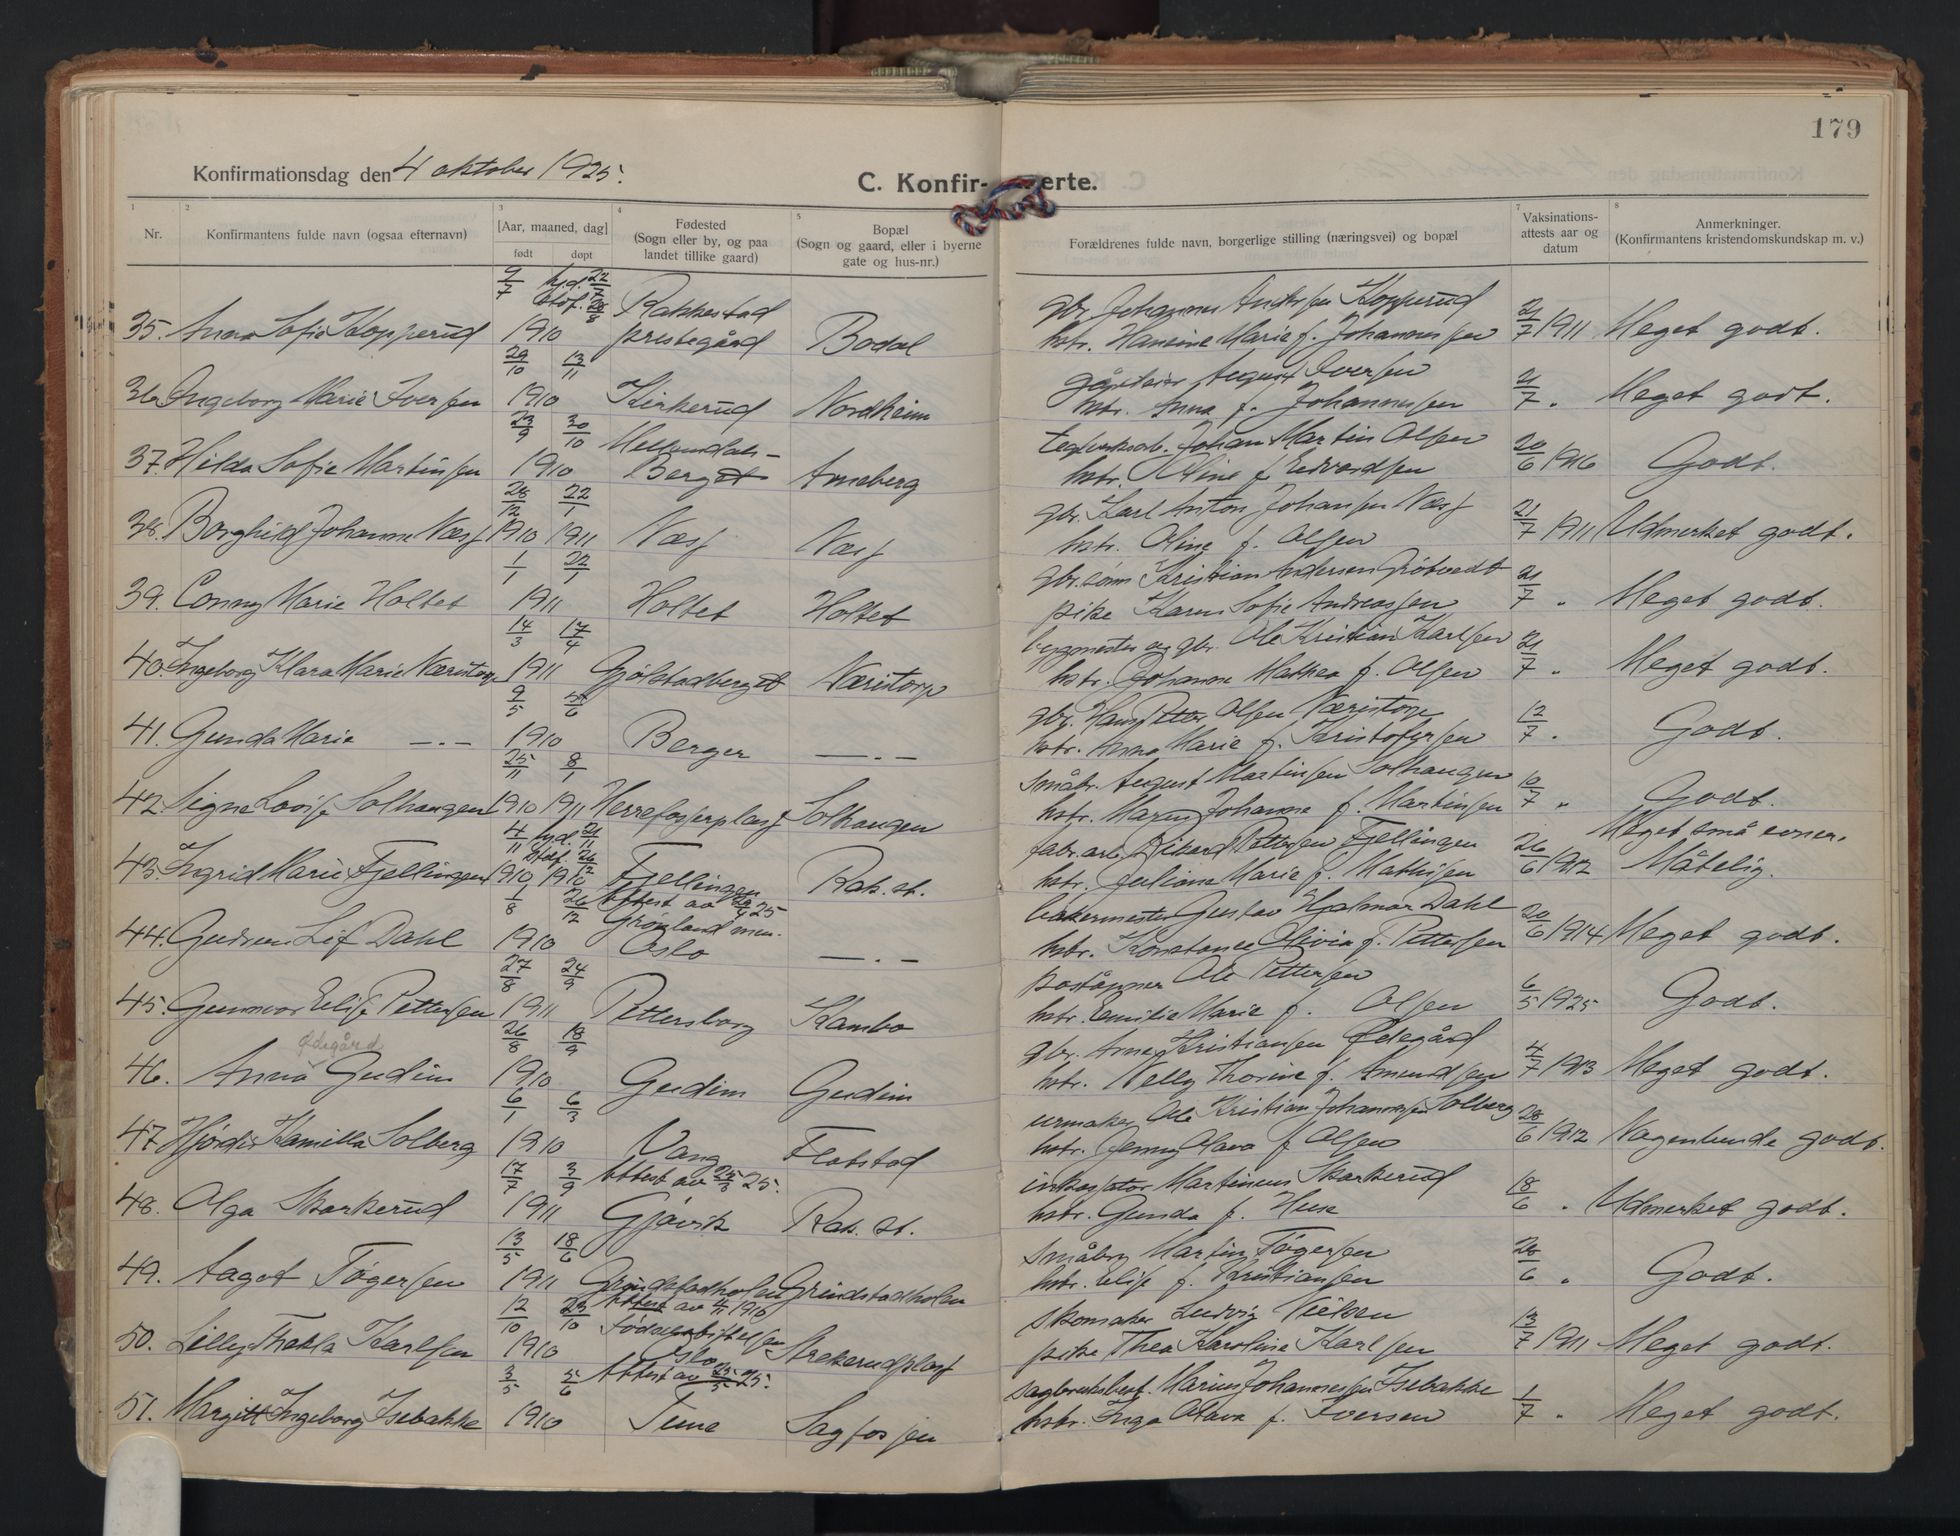 179
Konfirmationsdag den 4 oktober 1925.
C. Konfir- erte.
1 2 3 4 5 7 8
Nr.
Konfirmantens fulde navn (ogsaa efternavn)
[Aar, maaned, dag]
født døpt
Fødested
(Sogn eller by, og paa
landet tillike gaard)
Bopæl
(Sogn og gaard, eller i byerne
gate og hus-nr.)
Forældrenes fulde navn, borgerlige stilling (næringsvei) og bopæl
Vaksinations-
attests aar og
datum
Anmerkninger.
(Konfirmantens kristendomskundskap m. v.)
9/7 hjd. 22/7 Rakkestad gbr. Johannes Andersen Kopperud
35. Anna Sofie Kopperud 1910 prestegård Bodal hstr. Hansine Marie f. Johannessen 21/7 1911 Meget godt.
29/10 13/11 August Iversen
36. Ingeborg Marie Iversen 1910 Kirkerud Nordheim hstr. Anna f. Johannessen 21/7 " Meget godt.
23/9 30/10 teglverksarb. Johan Martin Olsen
37. Hilda Sofie Martinsen 1910 Berget Arneberg hstr. Oline f. Edvardsen 20/6 1916 Godt.
28/12 22/1 gbr. Karl Anton Johansen Næss
38. Borghild Johanne Næss 1910 1911 Næss Næss hstr. Oline f. Olsen 21/7 1911 Udmerket godt.
1/1 22/1 gbr.sønn Kristian Andersen Grötvedt
39. Conny Marie Holtet 1911 Holtet Holtet pike Karen Sofie Andreassen 21/7 " Meget godt.
14/3 17/4 bygmester og gbr. Ole Kristian Karlsen
40. Ingeborg Klara Marie Næristorp 1911 Gjølstadberget Næristorp hstr. Johanne Mathea f. Olsen 21/7 " Meget godt.
9/5 5/6 gbr. Hans Petter Olsen Næristorp
41. Gunda Marie —.— 1910 Berger —.— hstr. Anna Marie f. Kristofersen 12/7 " Godt.
25/11 8/1 småbr. August Martinsen Solhaugen
42. Signe Lovise Solhaugen 1910 1911 Herrefosserplass Solhaugen hstr. Maren Johanne f. Martinsen 10/7 " Godt.
4/11 hjd. 21/11 fabr.arb. Rikard Pettersen Fjellingen Meget små evner.
43. Ingrid Marie Fjellingen 1910 1910 Fjellingen Rak. st. hstr. Juliane Marie f. Mathisen 26/6 1912 Måtelig.
1/8 26/12 Attest av 29/4 25 Grønland men. bakermester Gustav Hjalmar Dahl
44. Gudrun Lif Dahl 1910 Oslo —.— hstr. Konstance Olivia f. Pettersen 20/6 1914 Meget godt.
27/8 24/9 poståpner Ole Pettersen
45. Gunvor Elise Pettersen 1911 Pettersborg Kambo hstr. Emilie Marie f. Olsen 6/5 1925 Godt.
Ødegård 26/8 18/9 gbr. Arne Kristiansen Ødegård
46. Anna Gudim 1910 Gudim Gudim hstr. Nelly Thorine f. Amundsen 4/7 1913 Meget godt.
6/1 6/3 urmaker Ole Kristian Johannessen Solberg
47. Hjördis Kamilla Solberg 1910 Vang Flatstad hstr. Jenny Olava f. Olsen 28/6 1912 Nogenlunde godt.
17/7 3/9 Attest av 25/8 25. inkassator Martinius Skarkerud
48. Olga Skarkerud 1911 Gjøvik Rak. st. hstr. Gunda f. Huse 18/6 " Udmerket godt.
13/5 18/6 småbr. Martin Tögersen
49. Aagot Tögersen 1911 Grindstadholen Grindstadholen hstr. Elise f. Kristiansen 20/6 " Godt.
12/10 23/10 Attest av 4/11 1910 Fødselsstiftelsen skomaker Ludvig Nielsen
50. Lilly Thekla Karlsen 1910 Oslo Strekerudplass pike Thea Karoline Karlsen 13/7 1911 Meget godt.
3/5 5/6 Attest av 25/5 25. sagbruksbest. Marius Johannessen Isebakke
51. Margitt Ingeborg Isebakke 1910 Tune Sagfossen hstr. Inga Olava f. Iversen 1/7 " Meget godt.